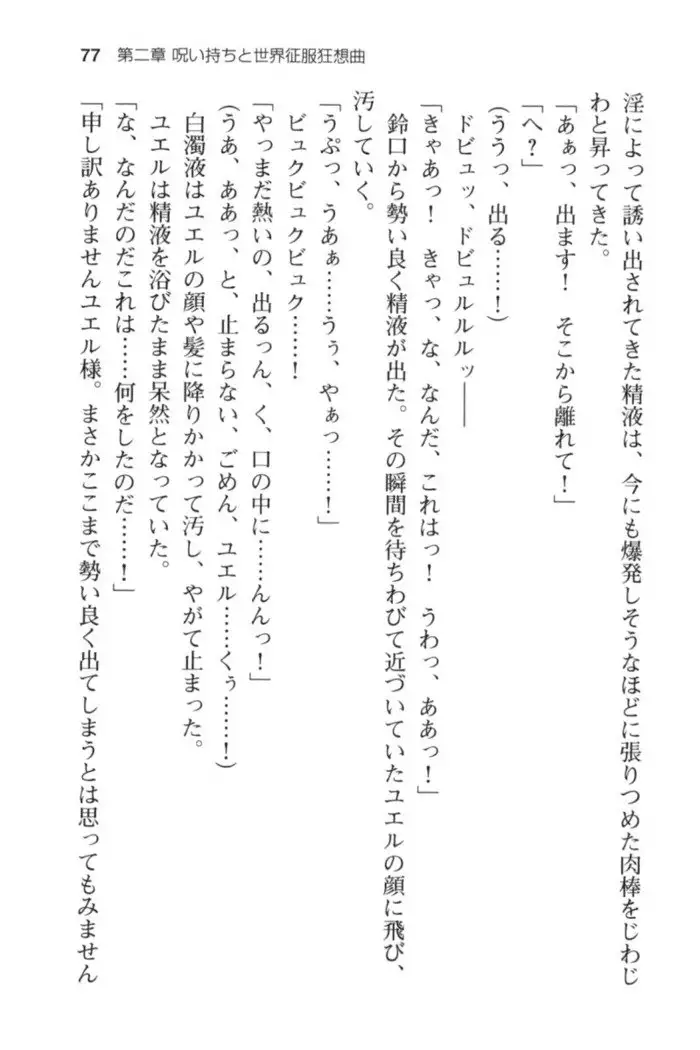 77 第二章 呪い持ちと世界征服狂想曲
淫によって誘い出されてきた精液は、今にも爆発しそうなほどに張りつめた肉棒をじわじ
わと昇ってきた。
「あぁっ、出ます！　そこから離れて！」
「へ？」
（ううっ、出る……！）
ドビュッ、ドビュルルルッ――
「きゃあっ！　きゃっ、な、なんだ、これはっ！　うわっ、ああっ！」
鈴口から勢い良く精液が出た。その瞬間を待ちわびて近づいていたユエルの顔に飛び、
汚していく。
「うぷっ、うあぁ……うぅ、やぁっ……！」
ビュクビュクビュク……！
「やっまだ熱いの、出るっん、く、口の中に……んんっ！」
（うあ、ああっ、と、止まらない、ごめん、ユエル……くぅ……！）
白濁液はユエルの顔や髪に降りかかって汚し、やがて止まった。
ユエルは精液を浴びたまま呆然となっていた。
「な、なんだのだこれは……何をしたのだ……！」
「申し訳ありませんユエル様。まさかここまで勢い良く出てしまうとは思ってもみません